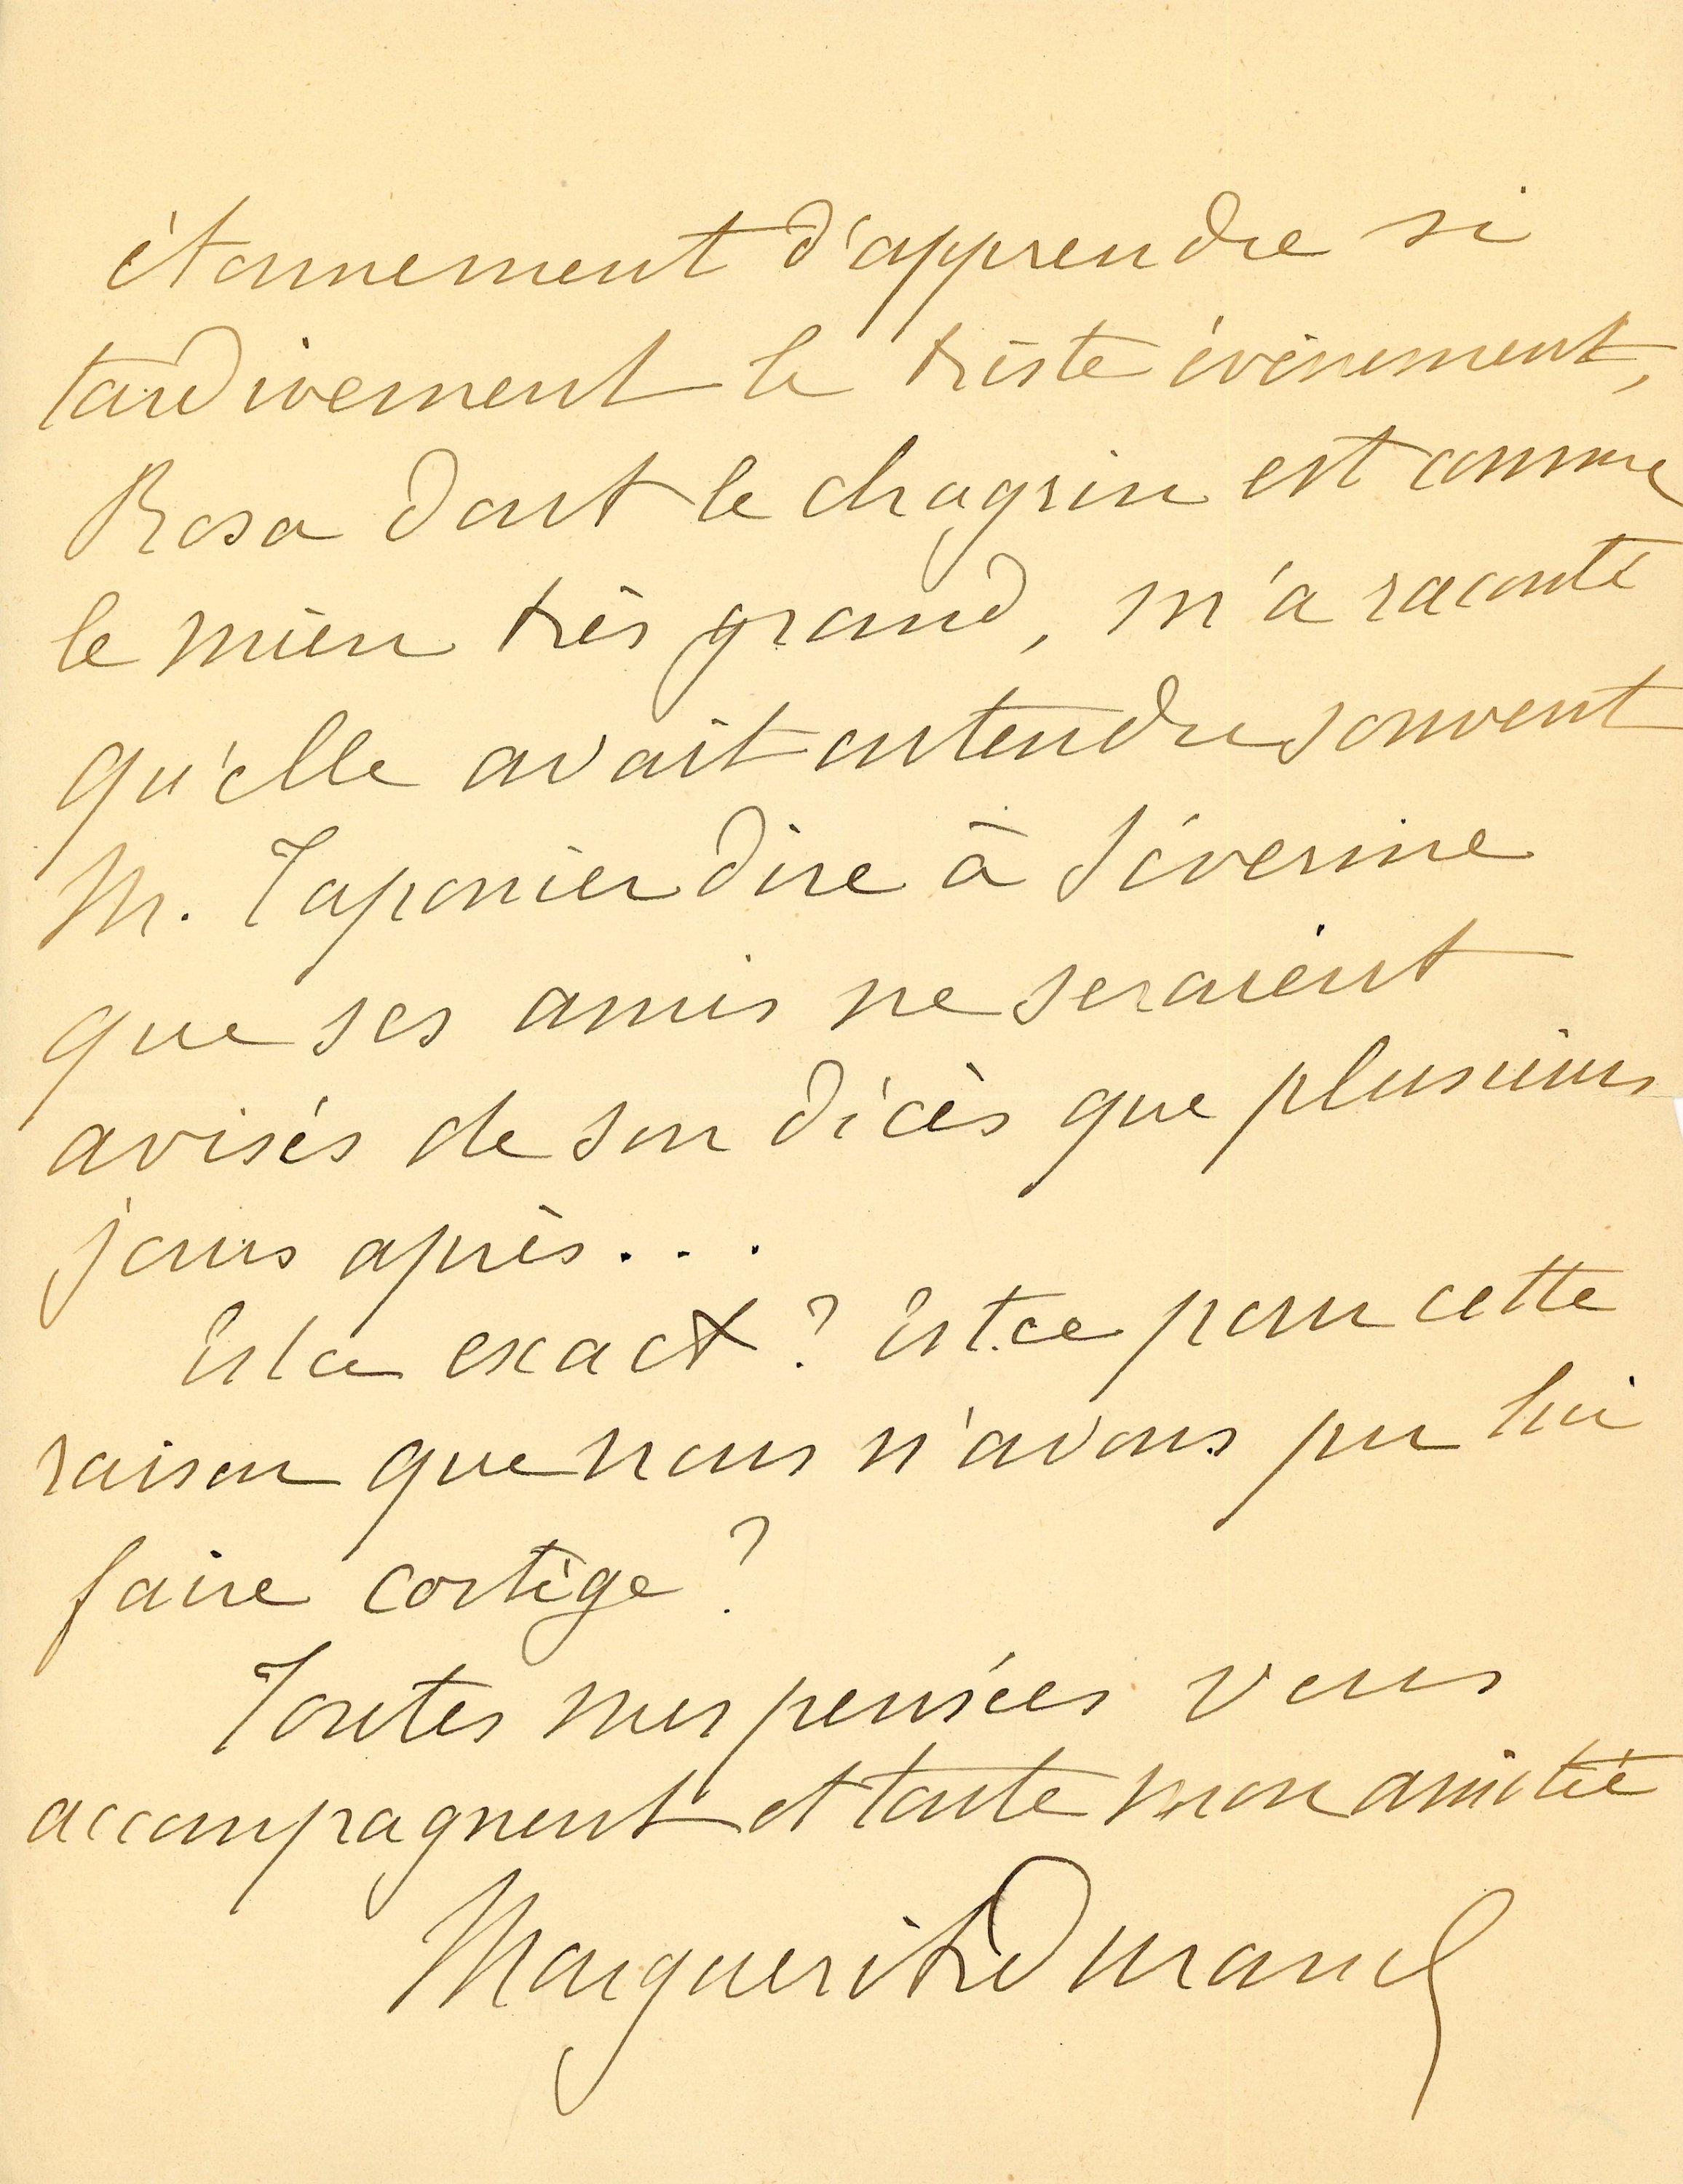 étonnement d'apprendre si
tardivement le triste événement,
Rosa dont le chagrin est comme
le mien très grand, m'a raconté
qu'elle avait entendu souvent
M. Taponier dire à Séverine
que ses amis ne seraient
avisés de son décès que plusieurs
jours après...
Est ce exact ? Est.ce pour cette
raison que nous n'avons pu lui
faire cortège ?
Toutes mes pensées vous
accompagnent et toute mon amitié
Marguerite Durand